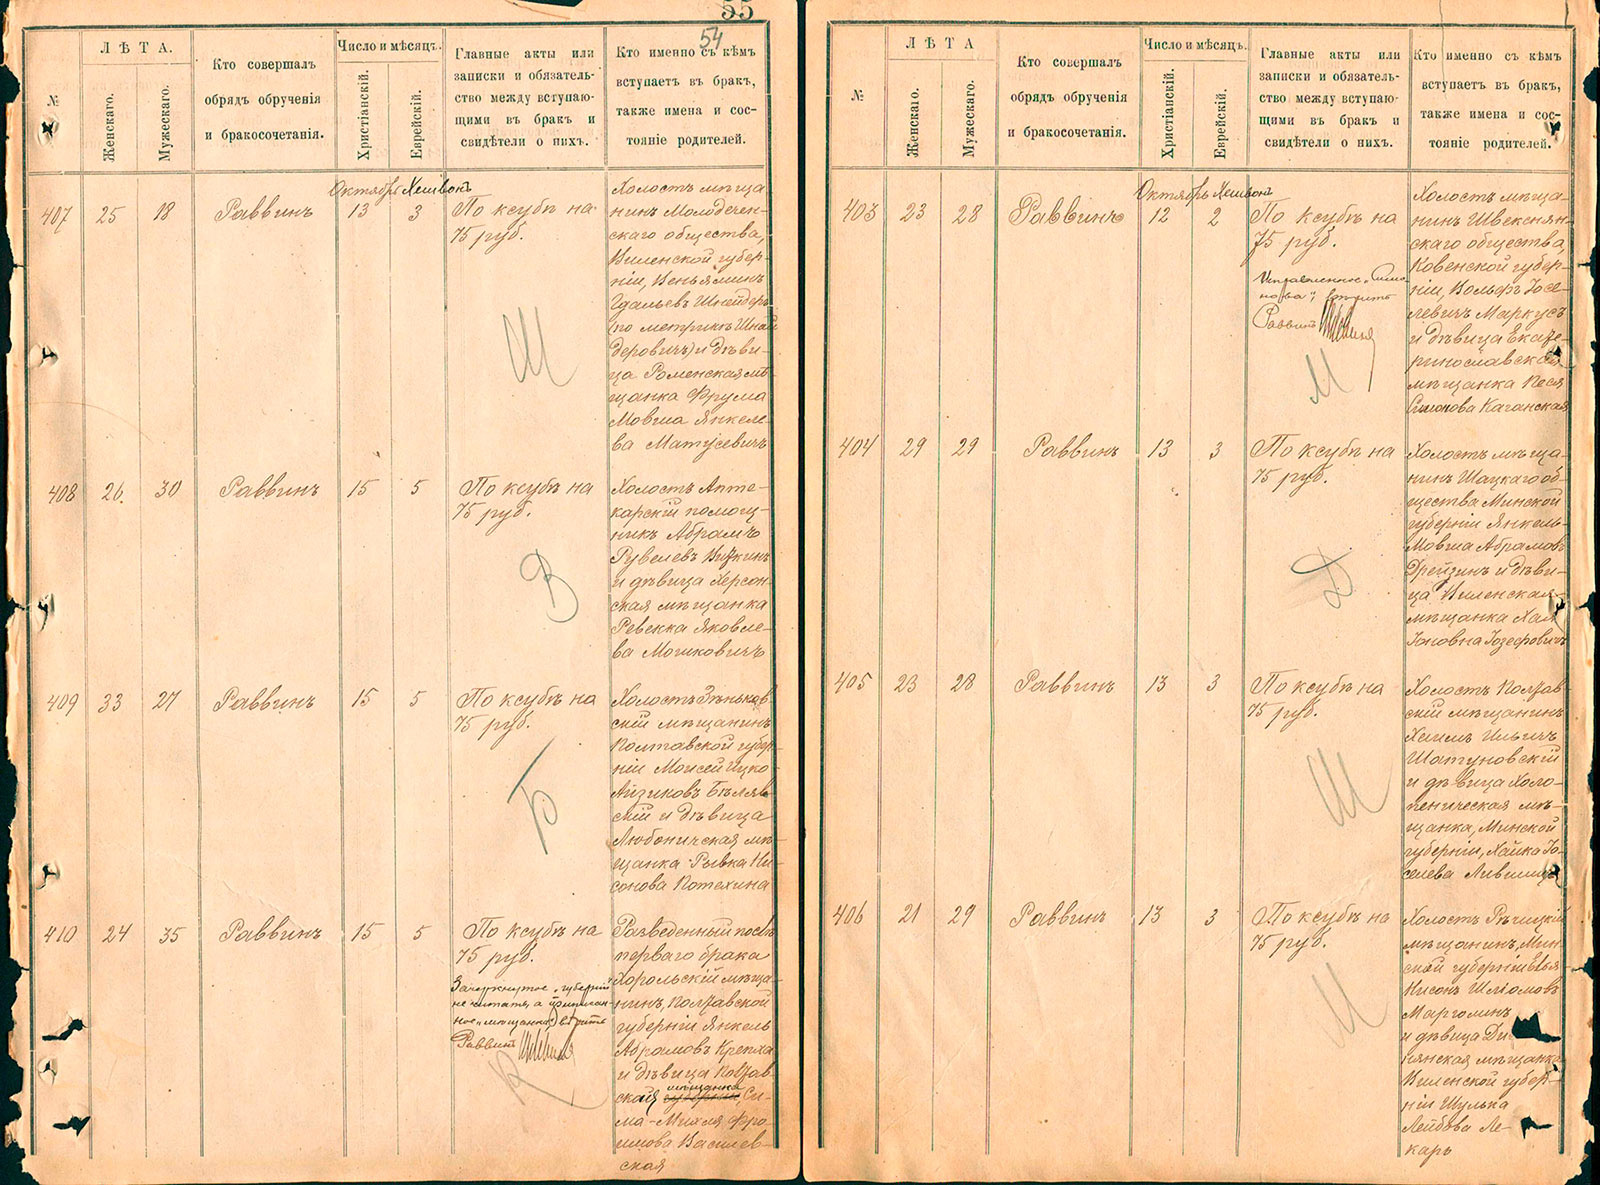 55
54
ЛѢТА.
№
Женскаго.
Мужескаго.
Кто совершалъ
обрядъ обрученія
и бракосочетанія.
Число и мѣсяцъ.
Христіанскій.
Еврейскій.
Главные акты или
записки и обязатель-
ство между вступаю-
щими въ бракъ и
свидѣтели о нихъ.
Кто именно съ кѣмъ
вступаетъ въ бракъ,
также имена и сос-
тояніе родителей.
Октябрь Хешвонъ
407 25 18 Раввинъ 13 3
По ксубѣ на
75 руб.
Ш
Холостъ мѣща-
нинъ Молодечен-
скаго общества,
Виленской губер-
ніи, Веньяминъ
Гдальевъ Шнейдеръ
(по метрикѣ Шнай
деровичъ) и дѣви-
ца Роменская мѣ-
щанка Фрума
Мовша Янкеле-
ва Матусевичъ
408 26. 30 Раввинъ 15 5
По ксубѣ на
75 руб.
В
Холостъ Апте-
карскій помощ-
никъ Абрамъ
Рувелевъ Виткинъ
и дѣвица Херсон-
ская мѣщанка
Ревекка Яковле-
ва Мошковичъ
409 33 27 Раввинъ 15 5
По ксубѣ на
75 руб.
Б
Холостъ Зѣньков-
скій мѣщанинъ
Полтавской губер-
ніи Моисей Ицко-
Айзиковъ Бѣляв-
скій и дѣвица
Любоничская мѣ-
щанка Рывка Ни-
сонова Потехина
410 24 35 Раввинъ 15 5
По ксубѣ на
75 руб.
Зачеркнутое „губерніи
не читать, а приписан-
ное „мѣщанка“, вѣрить
Раввинъ
К
Разведенный послѣ
перваго брака
Хорольскій мѣща-
нинъ, Полтавской
губерніи Янкель
Абрамовъ Крепха
и дѣвица Полтав-
мѣщанка
ская губерніи Си-
ма-Михля Фро-
имова Василев-
ская
ЛѢТА
№
Женскаго.
Мужескаго.
Кто совершалъ
обрядъ обрученія
и бракосочетанія.
Число и мѣсяцъ.
Христіанскій.
Еврейскій.
Главные акты или
записки и обязатель-
ство между вступаю-
щими въ бракъ и
свидѣтели о нихъ.
Кто именно съ кѣмъ
вступаетъ въ бракъ,
также имена и сос-
тояніе родителей.
Октябрь Хешвонъ
403 23 28 Раввинъ 12 2
По ксубѣ на
75 руб.
Исправленное „Симо-
нова“, вѣрить
Раввинъ
М
Холостъ мѣща-
нинъ Швекснян-
скаго общества,
Ковенской губер-
ніи, Вольфъ Іосе-
левичъ Маркусъ
и дѣвица Екате-
ринославская
мѣщанка Песя
Симонова Каганская
404 29 29 Раввинъ 13 3
По ксубѣ на
75 руб.
Д
Холостъ мѣща-
нинъ Шацкаго об-
щества Минской
губерніи Янкель-
Мовша Абрамовъ
Дрейзинъ и дѣви-
ца Виленская
мѣщанка Хая
Іозефовичъ
405 23 28 Раввинъ 13 3
По ксубѣ на
75 руб.
Ш
Холостъ Полтав-
скій мѣщанинъ
Хаимъ Ильичъ
Шатуновскій
и дѣвица Холо-
пеническая мѣ-
щанка, Минской
губерніи, Хайка Іо-
селева Лившицъ
406 21 29 Раввинъ 13 3
По ксубѣ на
75 руб.
М
Холостъ Рѣчицкій
мѣщанинъ, Мин-
ской губерніи Илья
Нисонъ Шліомовъ
Марголинъ
и дѣвица Ди-
снянская мѣщанка
Виленской губер-
ніи Шулька
Лейбова Ле-
карь